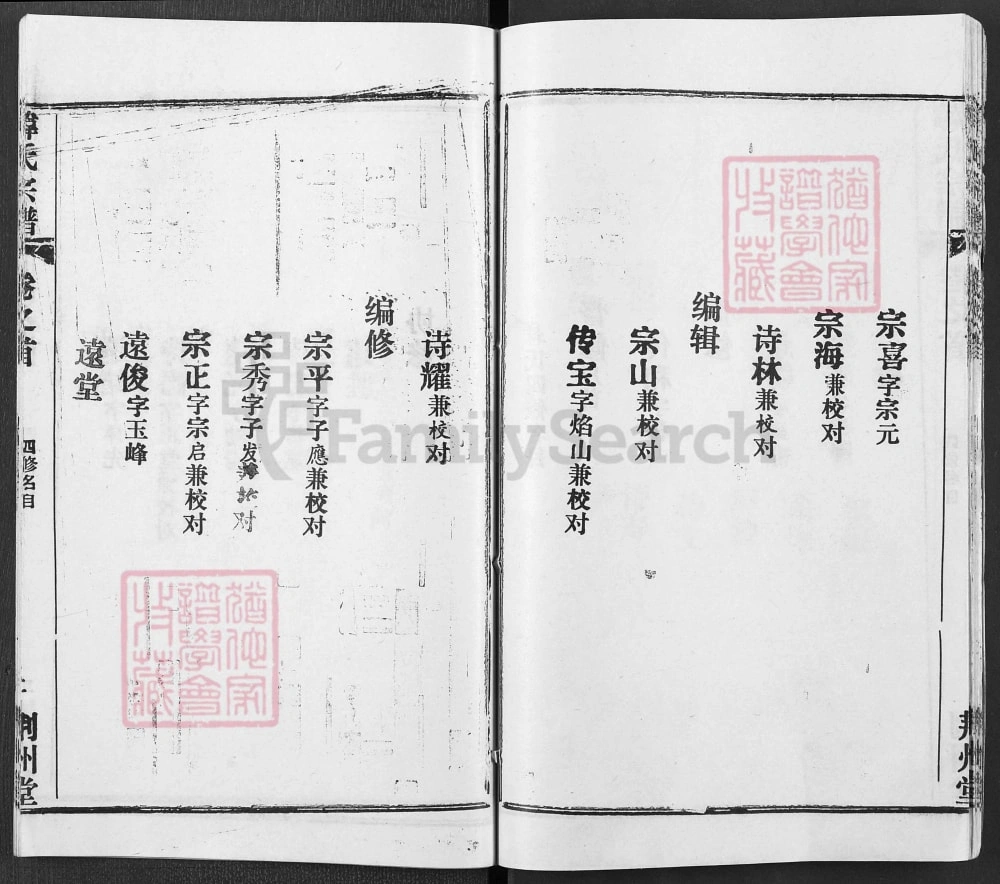 宗喜字宗元
宗海兼校对
诗林兼校对
编辑
宗山兼校对
传宝字焰山兼校对
荆州堂
诗耀兼校对
编修
宗平字子應兼校对
宗秀字子发兼校对
宗正字宗启兼校对
遠俊字玉峰
遠堂
韓氏宗譜
卷之首
四修名目
荆州堂
猶他家譜學會收藏
猶他家譜學會收藏
FamilySearch